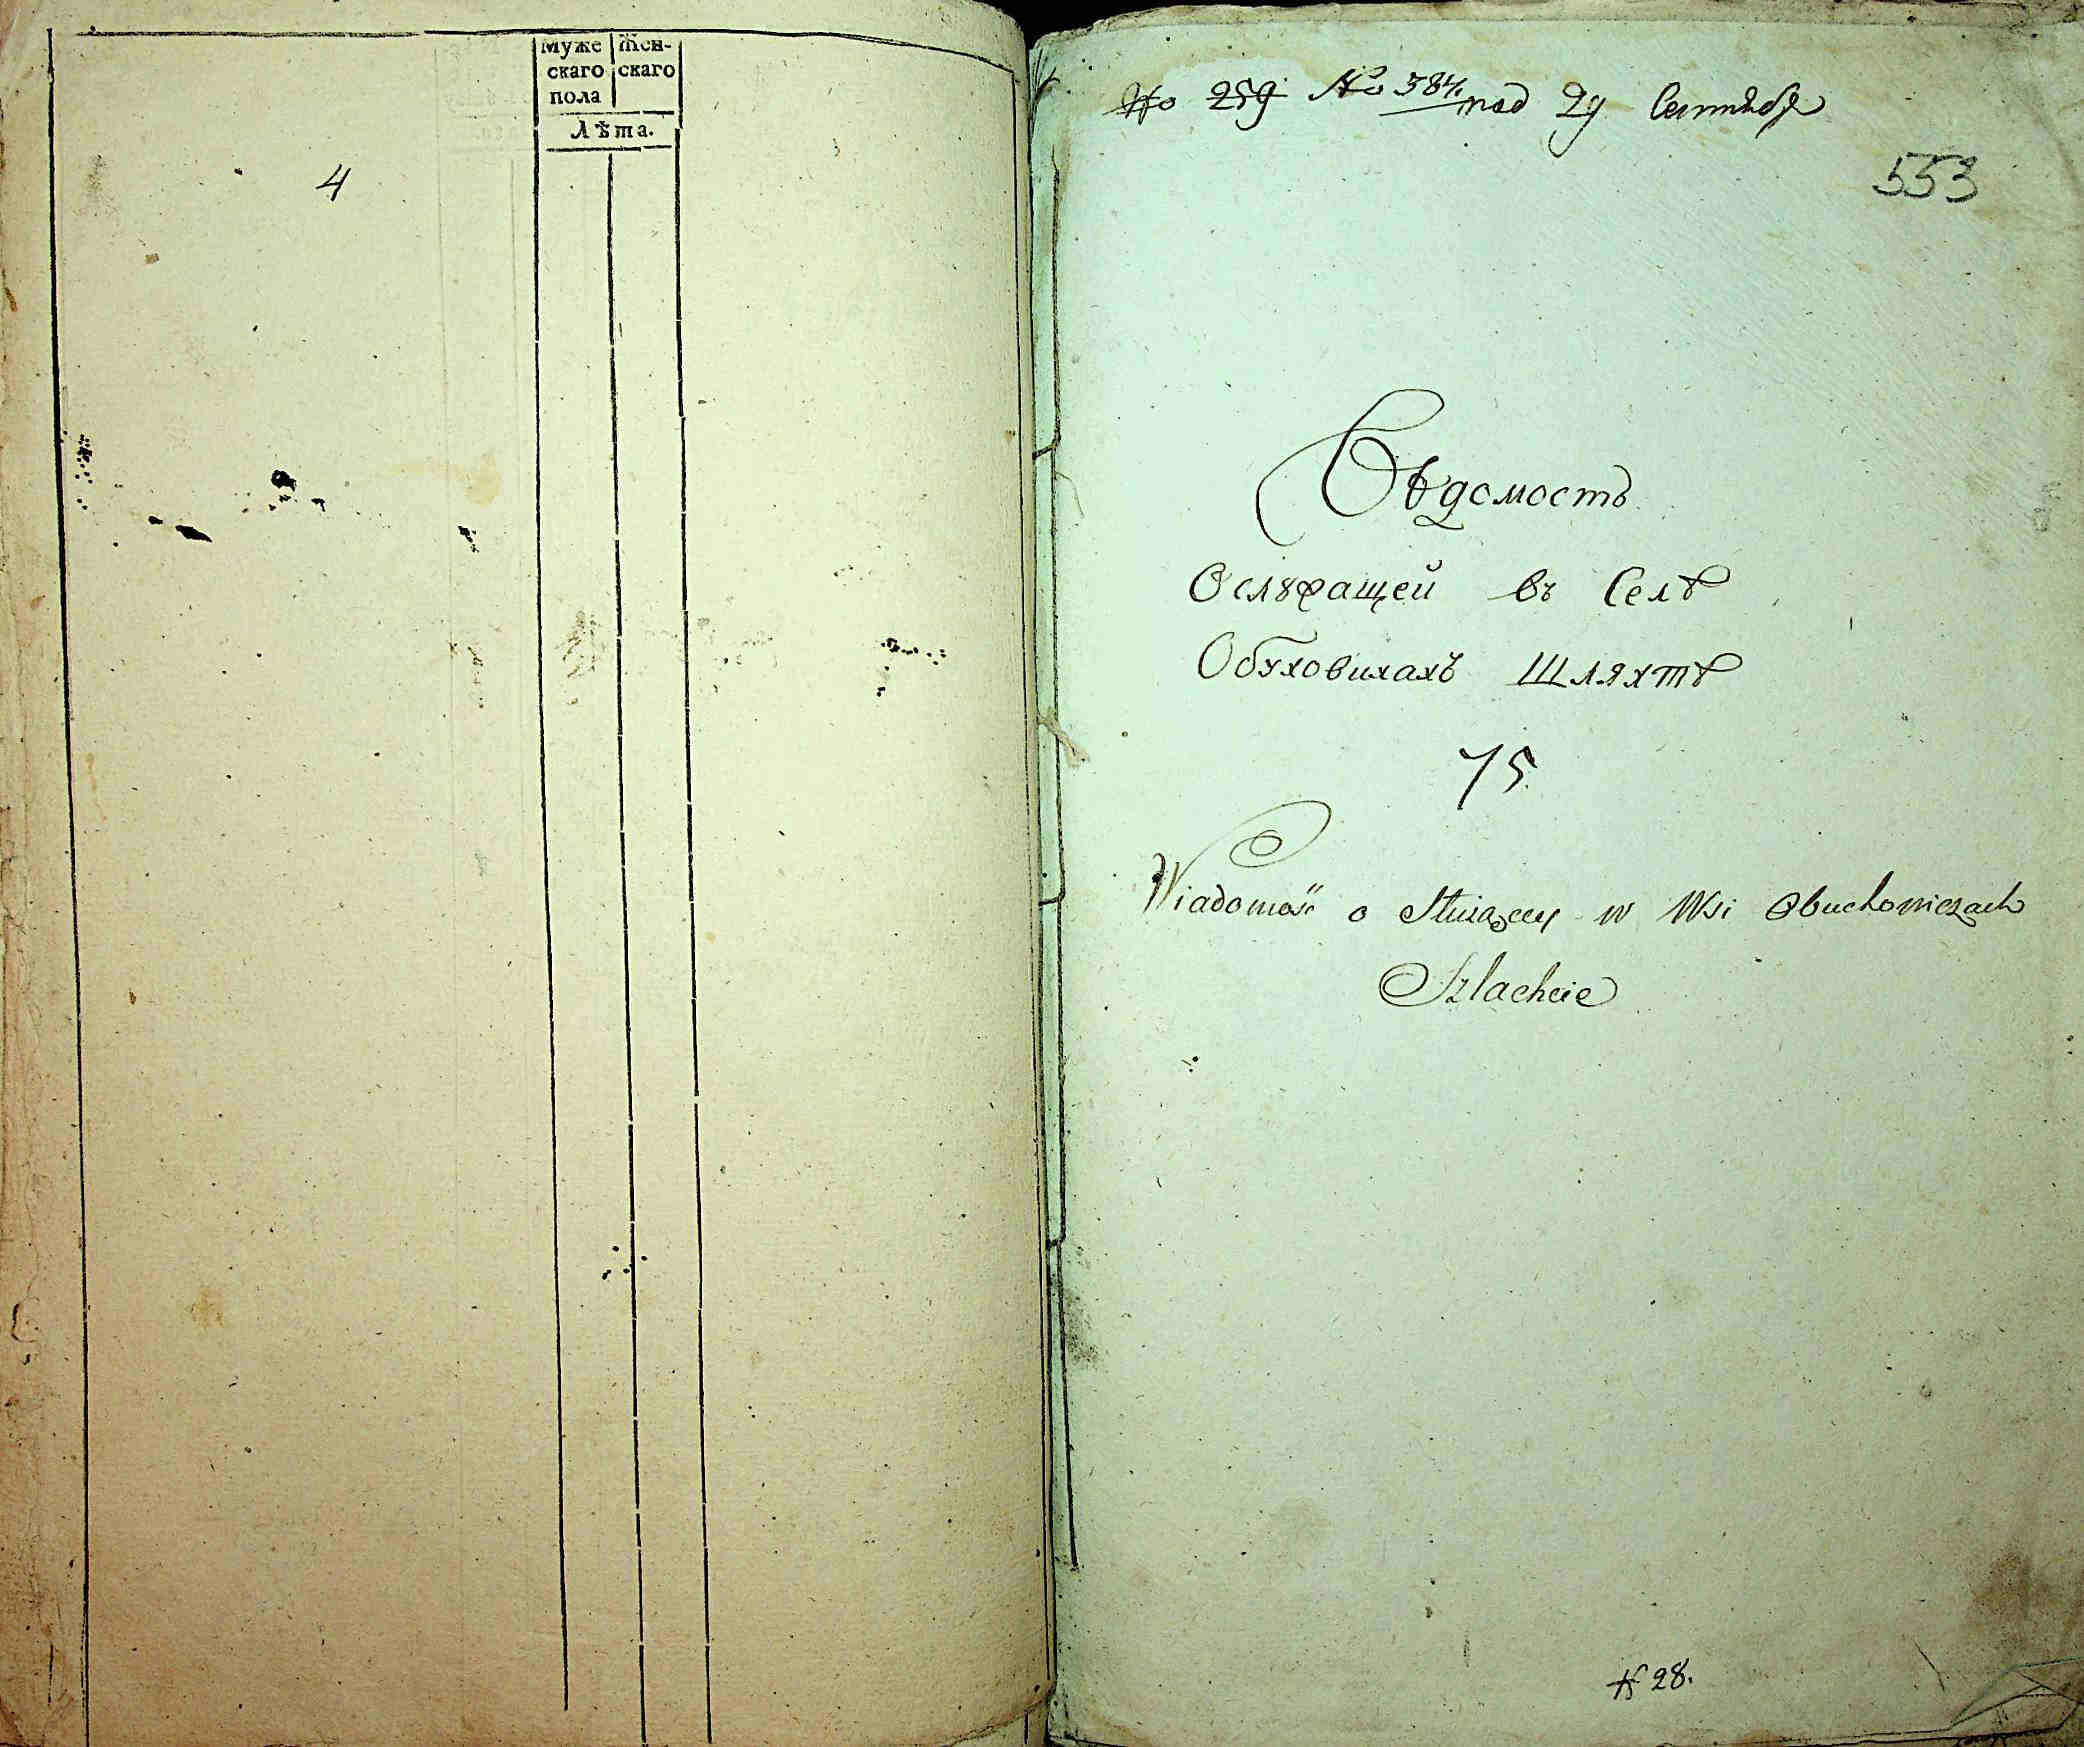 Муже
скаго
пола
Жен-
скаго
Лѣта.
4
No 259 No 384. под 29 Сентября
553
Вѣдомость
О служащей въ Селѣ
Обуховичахъ Шляхтѣ
75.
Wiadomość o służącey w Wsi Obuchowiczach
Szlachcie
N 28.